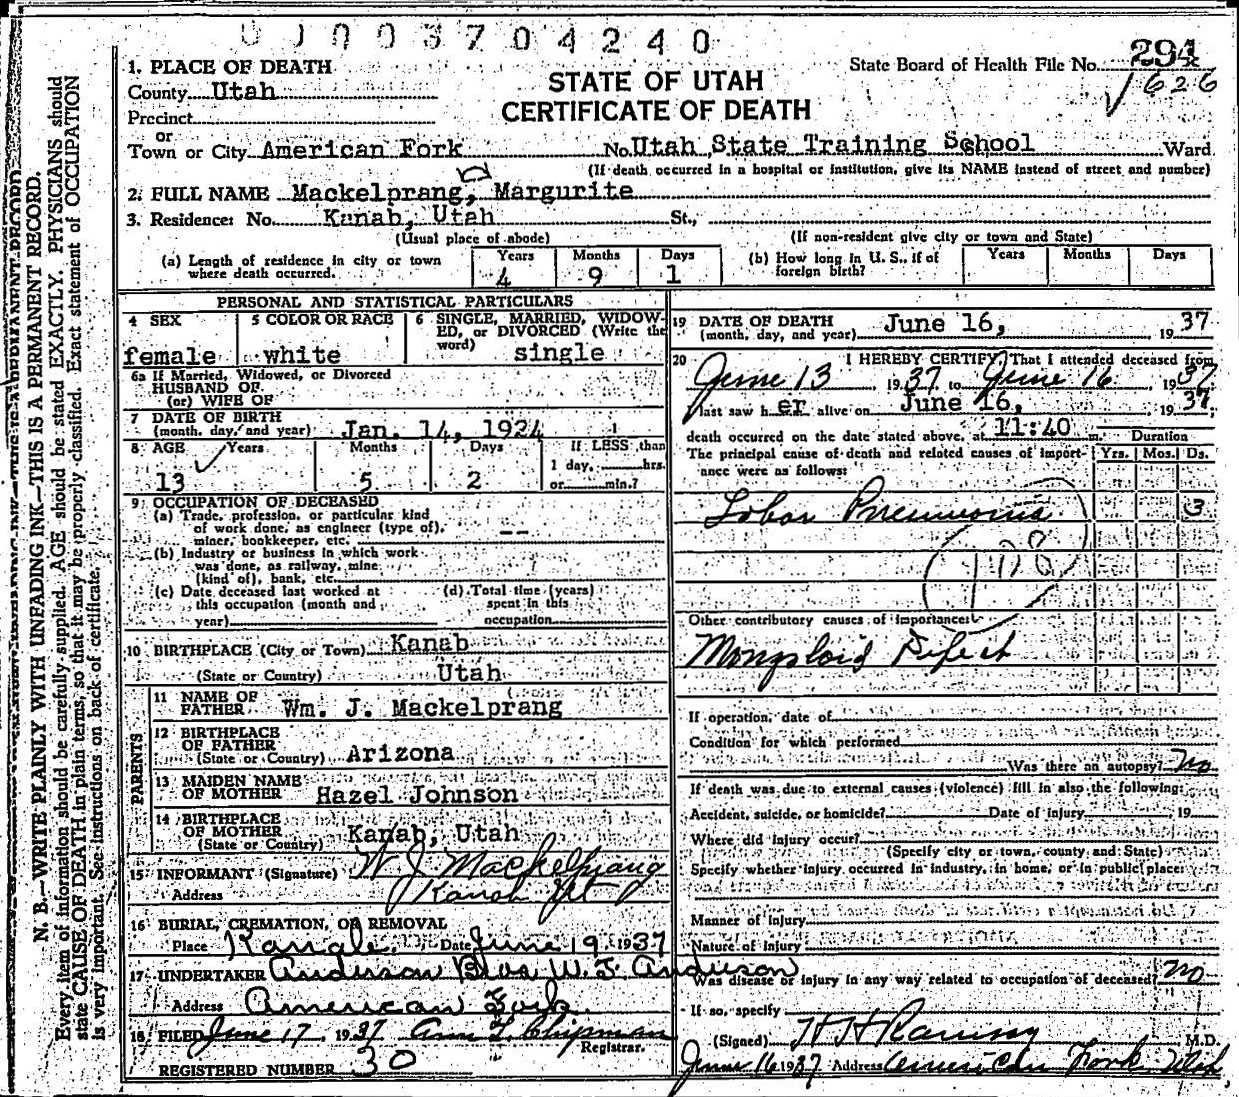 0003704240
1. PLACE OF DEATH
County Utah
Precinct
or
Town or City American Fork
STATE OF UTAH
CERTIFICATE OF DEATH
State Board of Health File No. 294
1626
No. Utah State Training School Ward
(If death occurred in a hospital or institution, give its NAME instead of street and number)
2. FULL NAME Mackelprang, Margurite
3. Residence: No. Kanab, Utah St.,
(Usual place of abode)
(If non-resident give city or town and State)
(a) Length of residence in city or town where death occurred. Years 4 Months 9 Days 1
(b) How long in U. S., if of foreign birth? Years Months Days
PERSONAL AND STATISTICAL PARTICULARS
4 SEX female
5 COLOR OR RACE white
6 SINGLE, MARRIED, WIDOWED, or DIVORCED (Write the word) single
6a If Married, Widowed, or Divorced
HUSBAND OF
(or) WIFE OF
7 DATE OF BIRTH
(month, day, and year) Jan. 14, 1924
8 AGE Years 13 Months 5 Days 2
If LESS than
1 day, hrs.
or min.?
9 OCCUPATION OF DECEASED
(a) Trade, profession, or particular kind
of work done, as engineer (type of), --
miner, bookkeeper, etc.
(b) Industry or business in which work
was done, as railway, mine
(kind of), bank, etc.
(c) Date deceased last worked at
this occupation (month and
year)
(d) Total time (years)
spent in this
occupation
10 BIRTHPLACE (City or Town) Kanab
(State or Country) Utah
PARENTS
11 NAME OF
FATHER Wm. J. Mackelprang
12 BIRTHPLACE
OF FATHER
(State or Country) Arizona
13 MAIDEN NAME
OF MOTHER Hazel Johnson
14 BIRTHPLACE
OF MOTHER
(State or Country) Kanab, Utah
15 INFORMANT (Signature) W J Mackelprang
Address Kanab Ut
16 BURIAL, CREMATION, OR REMOVAL
Place Date June 19, 1937
17 UNDERTAKER Anderson Bros W. J. Anderson
Address American Fork
18 FILED June 17, 1937 Chipman
Registrar.
REGISTERED NUMBER 30
19 DATE OF DEATH
(month, day, and year) June 16, 1937
20 I HEREBY CERTIFY, That I attended deceased from
June 13, 1937 to June 16, 1937
I last saw her alive on June 16, 1937;
death occurred on the date stated above, at 11:40 m.
Duration
The principal cause of death and related causes of importance were as follows: Yrs. Mos. Ds.
Lobar Pneumonia 3
108
Other contributory causes of importance:
Mongoloid Defect
If operation, date of
Condition for which performed
Was there an autopsy? No
If death was due to external causes (violence) fill in also the following:
Accident, suicide, or homicide? Date of injury, 19
Where did injury occur?
(Specify city or town, county and State)
Specify whether injury occurred in industry, in home, or in public place:
Manner of injury
Nature of injury
Was disease or injury in any way related to occupation of deceased? No
If so, specify
(Signed) H H Ramsay M.D.
June 16 1937 Address American Fork Utah
N. B.—WRITE PLAINLY WITH UNFADING INK—THIS IS A PERMANENT RECORD.
Every item of information should be carefully supplied. AGE should be stated EXACTLY. PHYSICIANS should
state CAUSE OF DEATH in plain terms, so that it may be properly classified. Exact statement of OCCUPATION
is very important. See instructions on back of certificate.